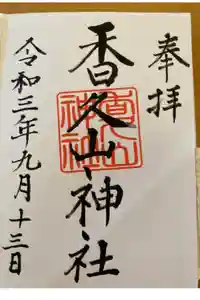 奉拝
香久山神社
令和三年九月十三日